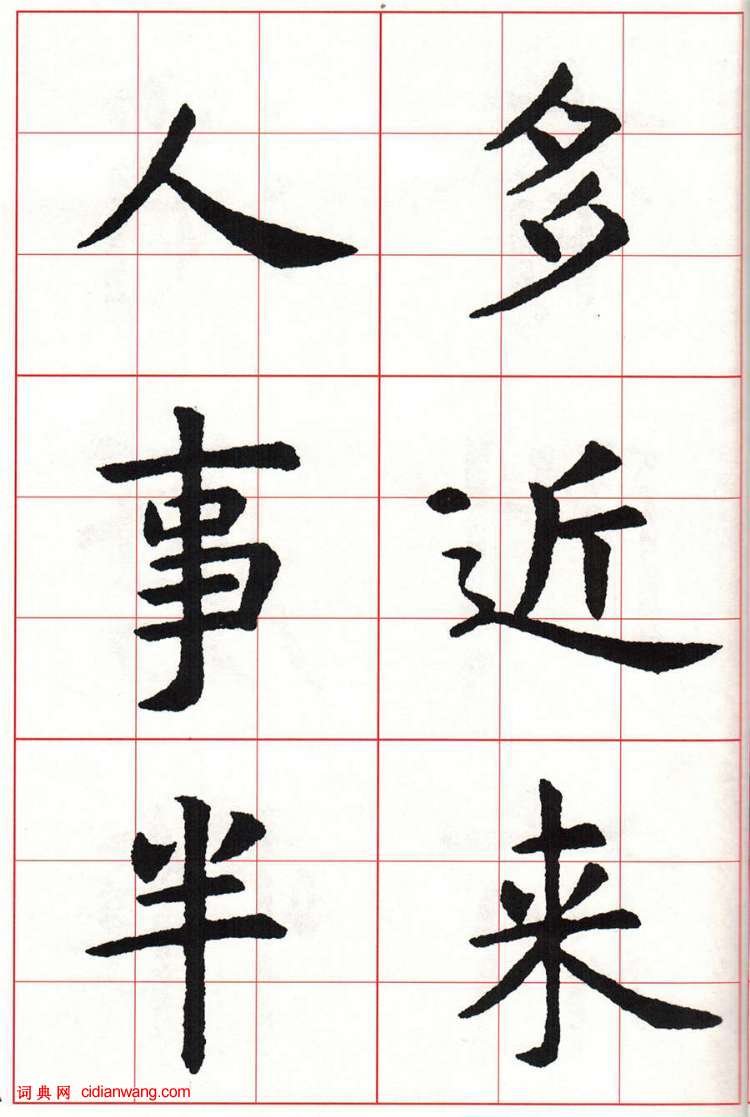 多近来
人事半
词典网 cidianwang.com